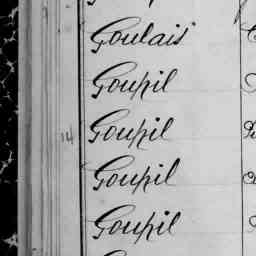 Goulais
Goupil
14 Goupil
Goupil
Goupil